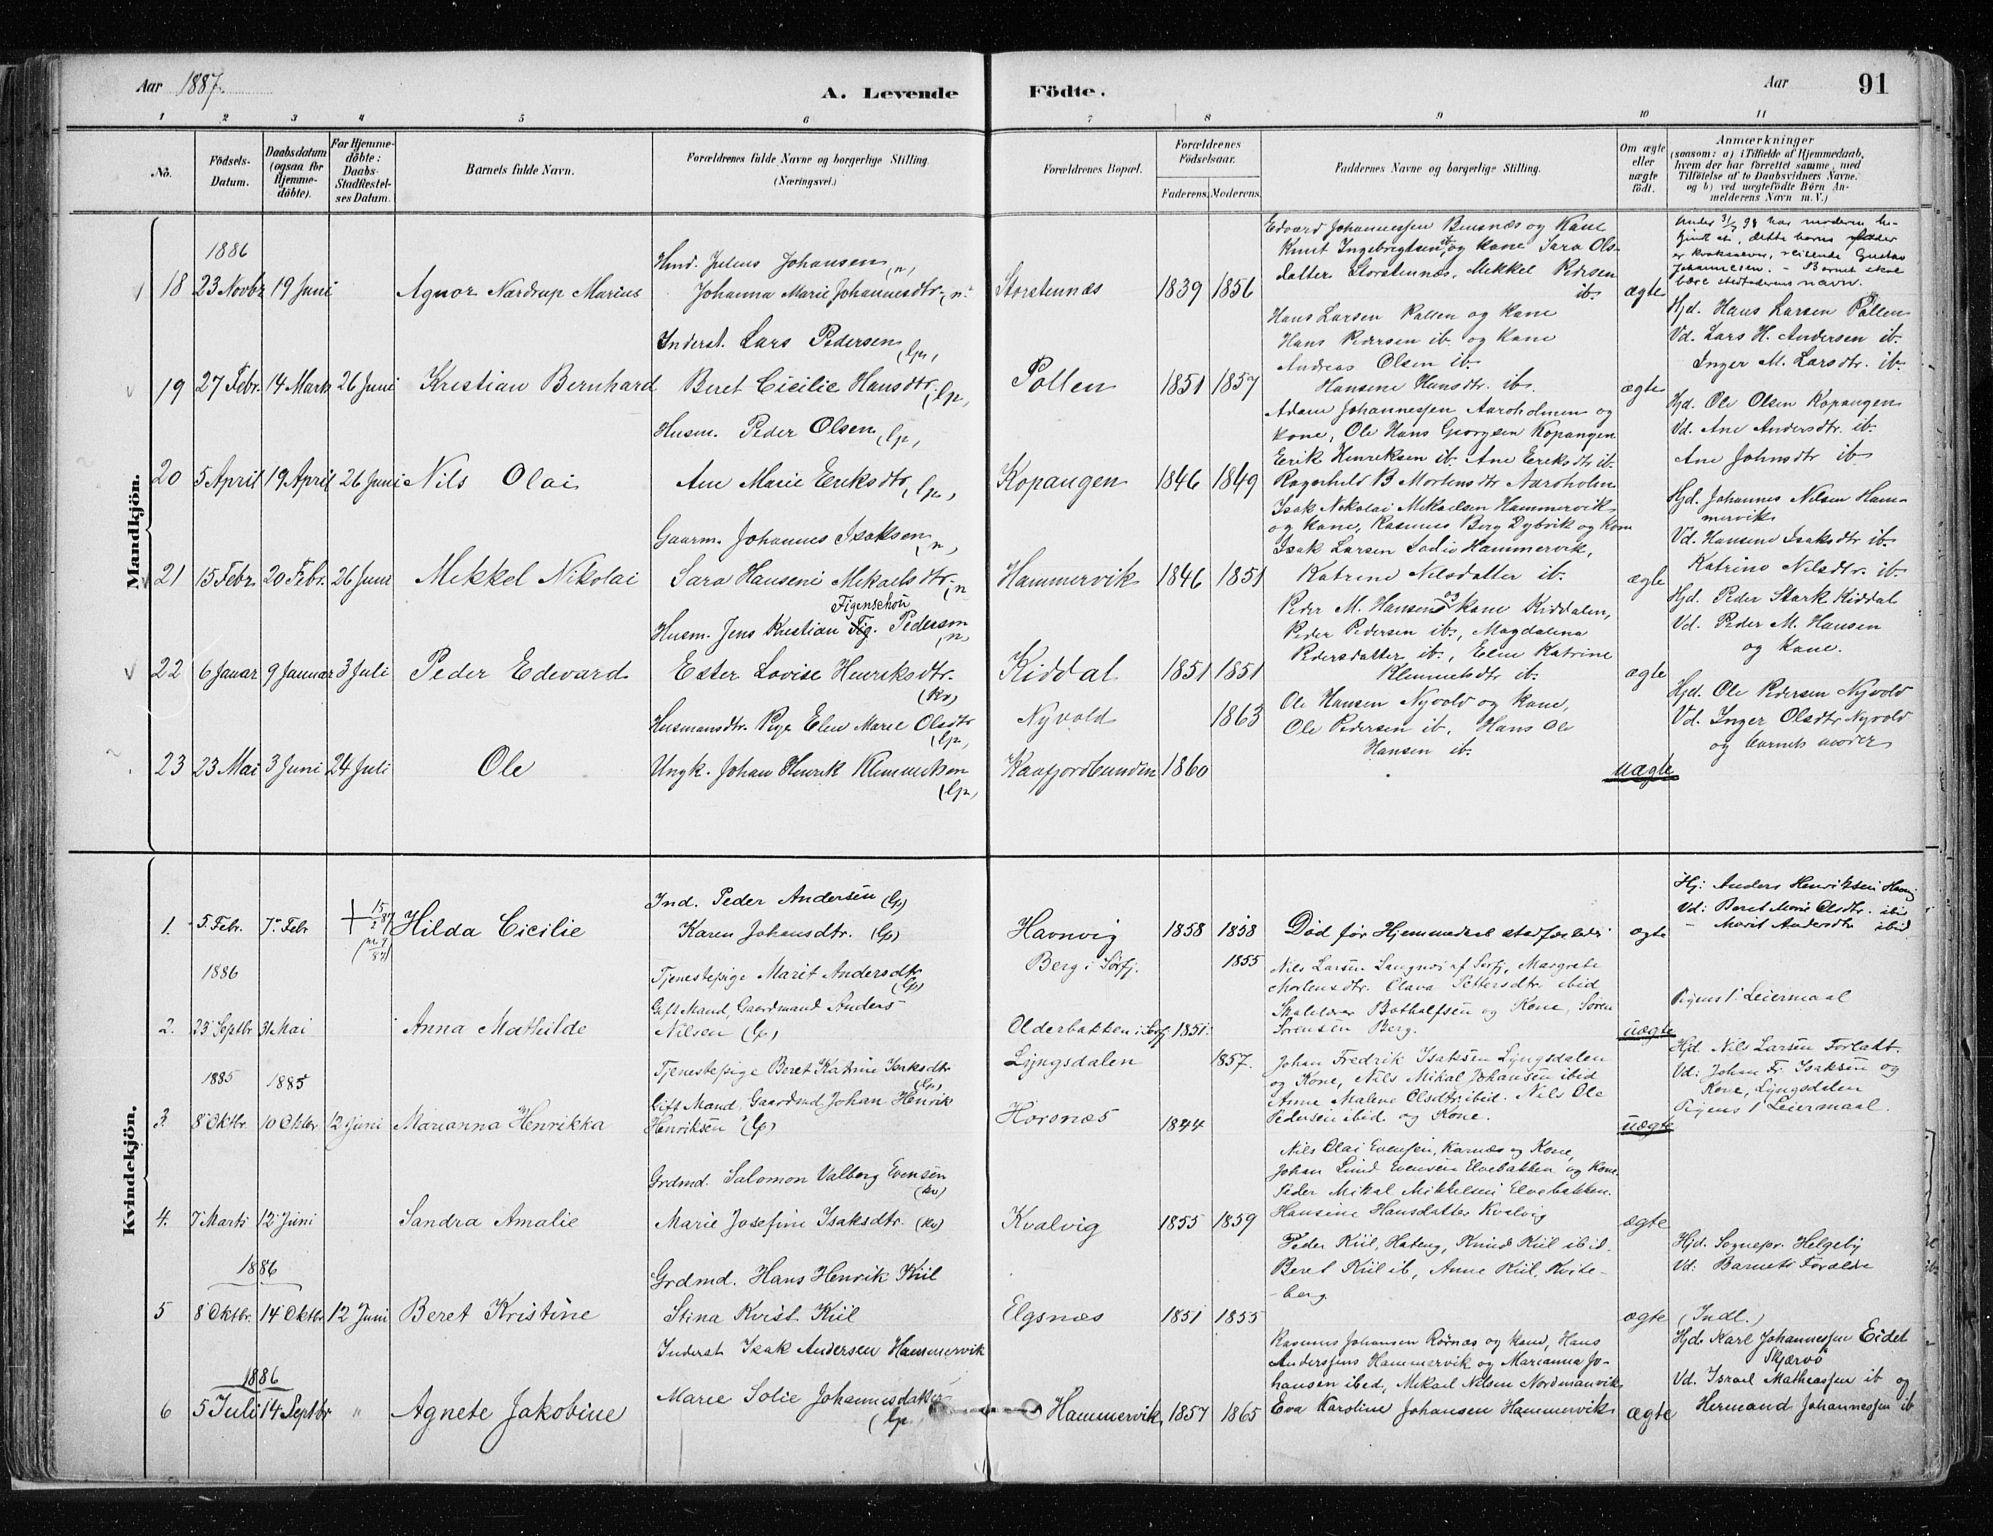 Aar 1887.
A. Levende Födte.
Aar
91
1 2 3 4 5 6 7 8 9 10 11
No.
Födsels-Datum.
Daabsdatum (ogsaa for Hjemmedöbte).
For Hjemmedöbte: Daabs-Stadfæstelses Datum.
Barnets fulde Navn.
Forældrenes fulde Navne og borgerlige Stilling. (Næringsvei.)
Forældrenes Bopæl.
Forældrenes Födselsaar.
Faderens. Moderens.
Faddernes Navne og borgerlige Stilling.
Om ægte eller uægte födt.
Anmærkninger
(saasom: a) i Tilfælde af Hjemmedaab, hvem der har forrettet samme, med Tilföielse af to Daabsvidners Navne. og b) ved uægtefödte Börn Anmelderens Navn m. V.)
Mandkjön.
1886
18 23 Novbr 19 Juni
Agnor Nardrup Marius
Hmd. Julius Johansen (n,
Johanna Marie Johannesdtr. (n.
Storstennæs 1839 1856
Edvard Johannessen Bensnæs og Kane
Knut Ingebrigtsen og Kane Sara Ols-
datter Storstennæs, Mekkel Pedersen
ib.
ægte
bære stedfaderens navn.
19 27 Febr. 14 Marts 26 Juni
Kristian Bernhard
Inderst. Lars Pedersen (lp,
Beret Cicilie Hansdtr. (lp,
Pollen 1851 1857
Hans Larsen Pollen og kane
Hans Pedersen ib. og kane
Andreas Olsen ib.
Hansine Hansdtr. ib.
ægte
Hjd. Hans Larsen Pollen
Vd. Lars H. Andersen ib.
Inger M. Larsdtr. ib.
20 5 April 19 April 26 Juni
Nils Olai
Husm. Peder Olsen (lp,
Ane Marie Eriksdtr (lp,
Kopangen 1846 1849
Adam Johannessen Aaroholmen og
kone, Ole Hans Georgsen Kopangen
Erik Henriksen ib. Ane Eriksdtr ib.
Ragnhild B Mortensdtr Aaroholm
Hjd. Ole Olsen Kopangen
Vd. Ane Andersdtr. ib.
Ane Johnsdtr ib.
21 15 Febr. 20 Febr. 26 Juni
Mekkel Nikolai
Gaarm. Johannes Isaksen (n,
Sara Hansene Mekaelsdtr. (n
Hammervik 1846 1851
Isak Nikolai Mekaelsen Hammervik
og kane, Rasmus Berg Dybvik og Kone
Isak Larsen Sadio Hammervik,
Katrine Nilsdatter ib.
ægte
Hjd. Johannes Nilsen Ham-
mervik
Vd. Hansine Isaksdtr ib.
Katrine Nilsdtr. ib.
22 6 Januar 9 Januar 3 Juli
Peder Edevard
Figenschou
Husm. Jens Kristian Fig. Pederson (n,
Ester Lovise Henriksdtr. (Kv)
Kiddal 1851 1851
Peder M. Hansen og kane Kiddalen,
Peder Pedersen ib., Magdalena
Pedersdatter ib., Elen Katrine
Klemmetsdtr ib.
ægte
Hjd. Peder Stark Kiddal
Vd. Peder M. Hansen
og kane.
23 23 Mai 3 Juni 24 Juli
Ole
Husmansdtr. Pige Elen Marie Olsdtr (lp,
Ungk. Johan Henrik Klemmetsen (lp,
Nyvold 1863
Kaafjordbunden 1860
Ole Hansen Nyvold og kane,
Ole Pedersen ib., Hans Ole
Hansen ib.
uægte
Hjd. Ole Pedersen Nyvold
Vd. Inger Olsdtr Nyvold
og barnets moder
Kvindekjön.
1. 5. Febr. 7 Febr
Hilda Cicilie
Ind. Peder Andersen (lp)
Karen Johansdtr. (lp)
Havnvig 1858 1858
Død før Hjemmedaab stadfæstedes
ægte
Hj: Anders Henriksen Havnvig
Vd: Beret Marie Olsdtr. ibid
- Marit Andersdtr ibid
1886
2. 23 Septbr 31 Mai
Anna Mathilde
Tjenestepige Marit Andersdtr (lp)
Gift Mand, Gaardmand Anders
Nilsen (lp)
Berg i Sörfj. 1855
Olderbakken i Sørfj. 1851.
Nils Larsen Langnes af Sørfj, Margrete
Mortensdtr. Olava Pettersdtr ibid
Bothalfsen og Kone, Søren
Sørensen Berg.
uægte
Pigens 1' Leiermaal
1885 1885
3. 8 Oktbr. 10 Oktbr 12 Juni
Marianna Henrikka
Tjenestepige Beret Katrine Isaksdtr (lp)
Gift Mand, Gaardmd Johan Henrik
Henriksen (lp)
Lyngsdalen 1857.
Horsnæs 1844
Johan Fredrik Isaksen Lyngsdalen
og Kone, Nils Mikal Johansen ibid
Anne Malene Olsdtr ibid. Nils Ole
Pedersen ibid og Kone.
uægte
Hjd. Nils Larsen Forlatt.
Vd: Johan Fr. Isaksen og
Kone, Lyngsdalen
Pigens 1' Leiermaal.
4. 7 Marts 12 Juni
Sandra Amalie
Grdmd. Salomon Valberg Evensen (Kv)
Marie Josefine Isaksdtr. (Kv)
Kvalvig 1855 1859
Nils Olai Evensen, Karnæs og Kone,
Johan Lund Evensen Elvebakken og Kone
Peder Mikal Mikkelsen Elvebakken.
Hansine Hansdatter Kvalvig
ægte
1886
5 8 Oktbr. 14 Oktbr 12 Juni
Beret Kristine
Grdmd. Hans Henrik Kiil
Stina Kvist Kiil
Elgsnæs 1851 1855
Peder Kiil, Hateng, Knud Kiil ibid.
Beret Kiil ib, Anne Kiil, Kvite-
berg
ægte
Hjd. Sognepr. Helgeby
Vd. Barnets Forældre
(Indl.)
1886
6 5 Juli 14 Septbr "
Agnete Jakobine
Inderst Isak Andersen Hammervik
Marie Solie Johannesdatter (lp,
Hammervik 1857 1865
Rasmus Johansen Rørnæs og kane, Hans
Anderssens Hammervik og Marianna Jo-
hansen ibed, Mikael Nilsen Nordmanvik
Eva Karoline Johansen Hammervik
ægte
Hjd. Karl Johannessen Eidet
Skjærvö
Vd. Israel Mathiassen ib og
Hermand Johannessen ib